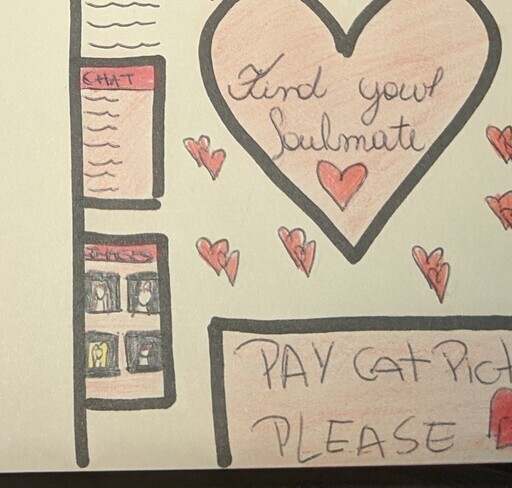 CHAT
Find your
Soulmate
PAY Cat Pict
PLEASE